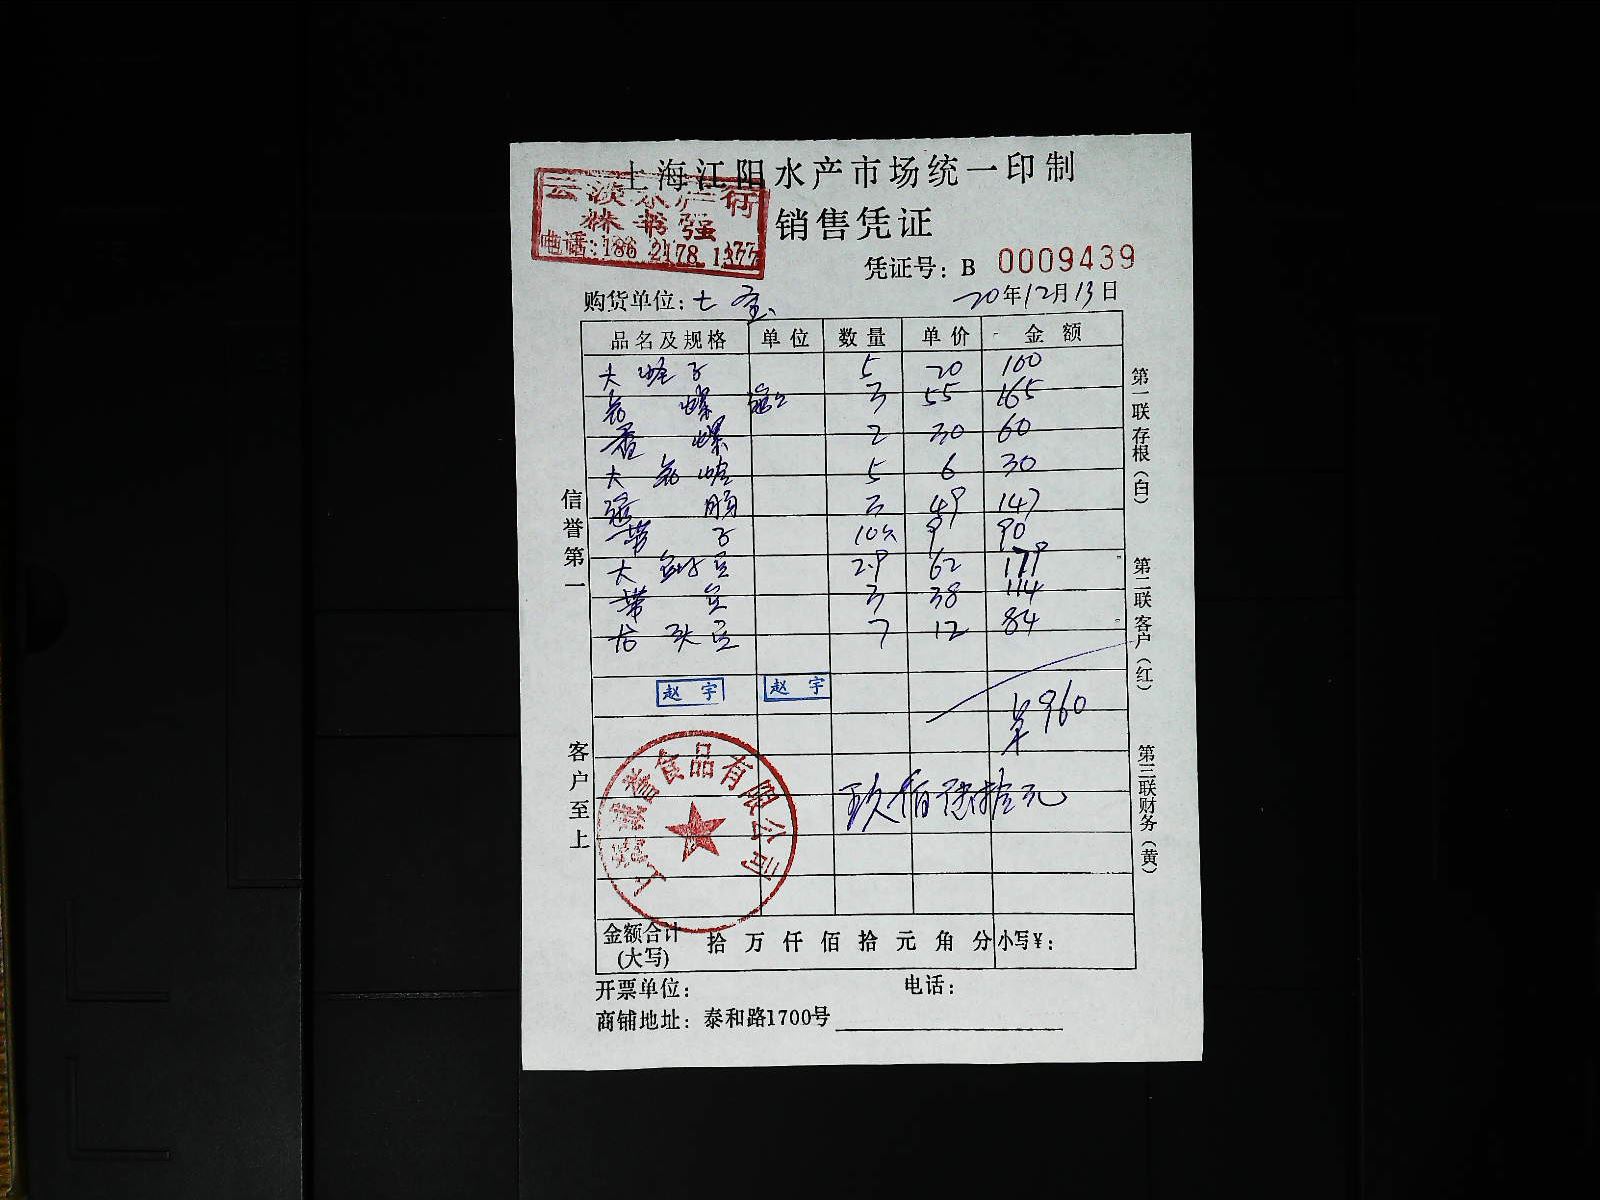 上海江阳水产市场统一印制
云淡水产行
林书强
电话:186 2178 1377
销售凭证
凭证号: B 0009439
购货单位: 七宝
20年12月13日
品名及规格 单位 数量 单价 金额
大蛏子 5 20 100
螺 3 55 165
香螺 2 30 60
大 蛤 5 6 30
3 49 147
子 10 9 90
大 2.9 62 179
带 3 38 114
龙头 7 12 84
赵宇 赵宇
¥960
玖佰陆拾元
上海 诚誉食品有限公司
金额合计(大写) 拾 万 仟 佰 拾 元 角 分 小写¥:
开票单位: 电话:
商铺地址: 泰和路1700号
信誉第一
客户至上
第一联存根(白)
第二联客户(红)
第三联财务(黄)